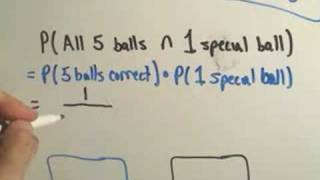 P(All 5 balls ∩ 1 special ball)
= P(5 balls correct) • P(1 special ball)
= 1